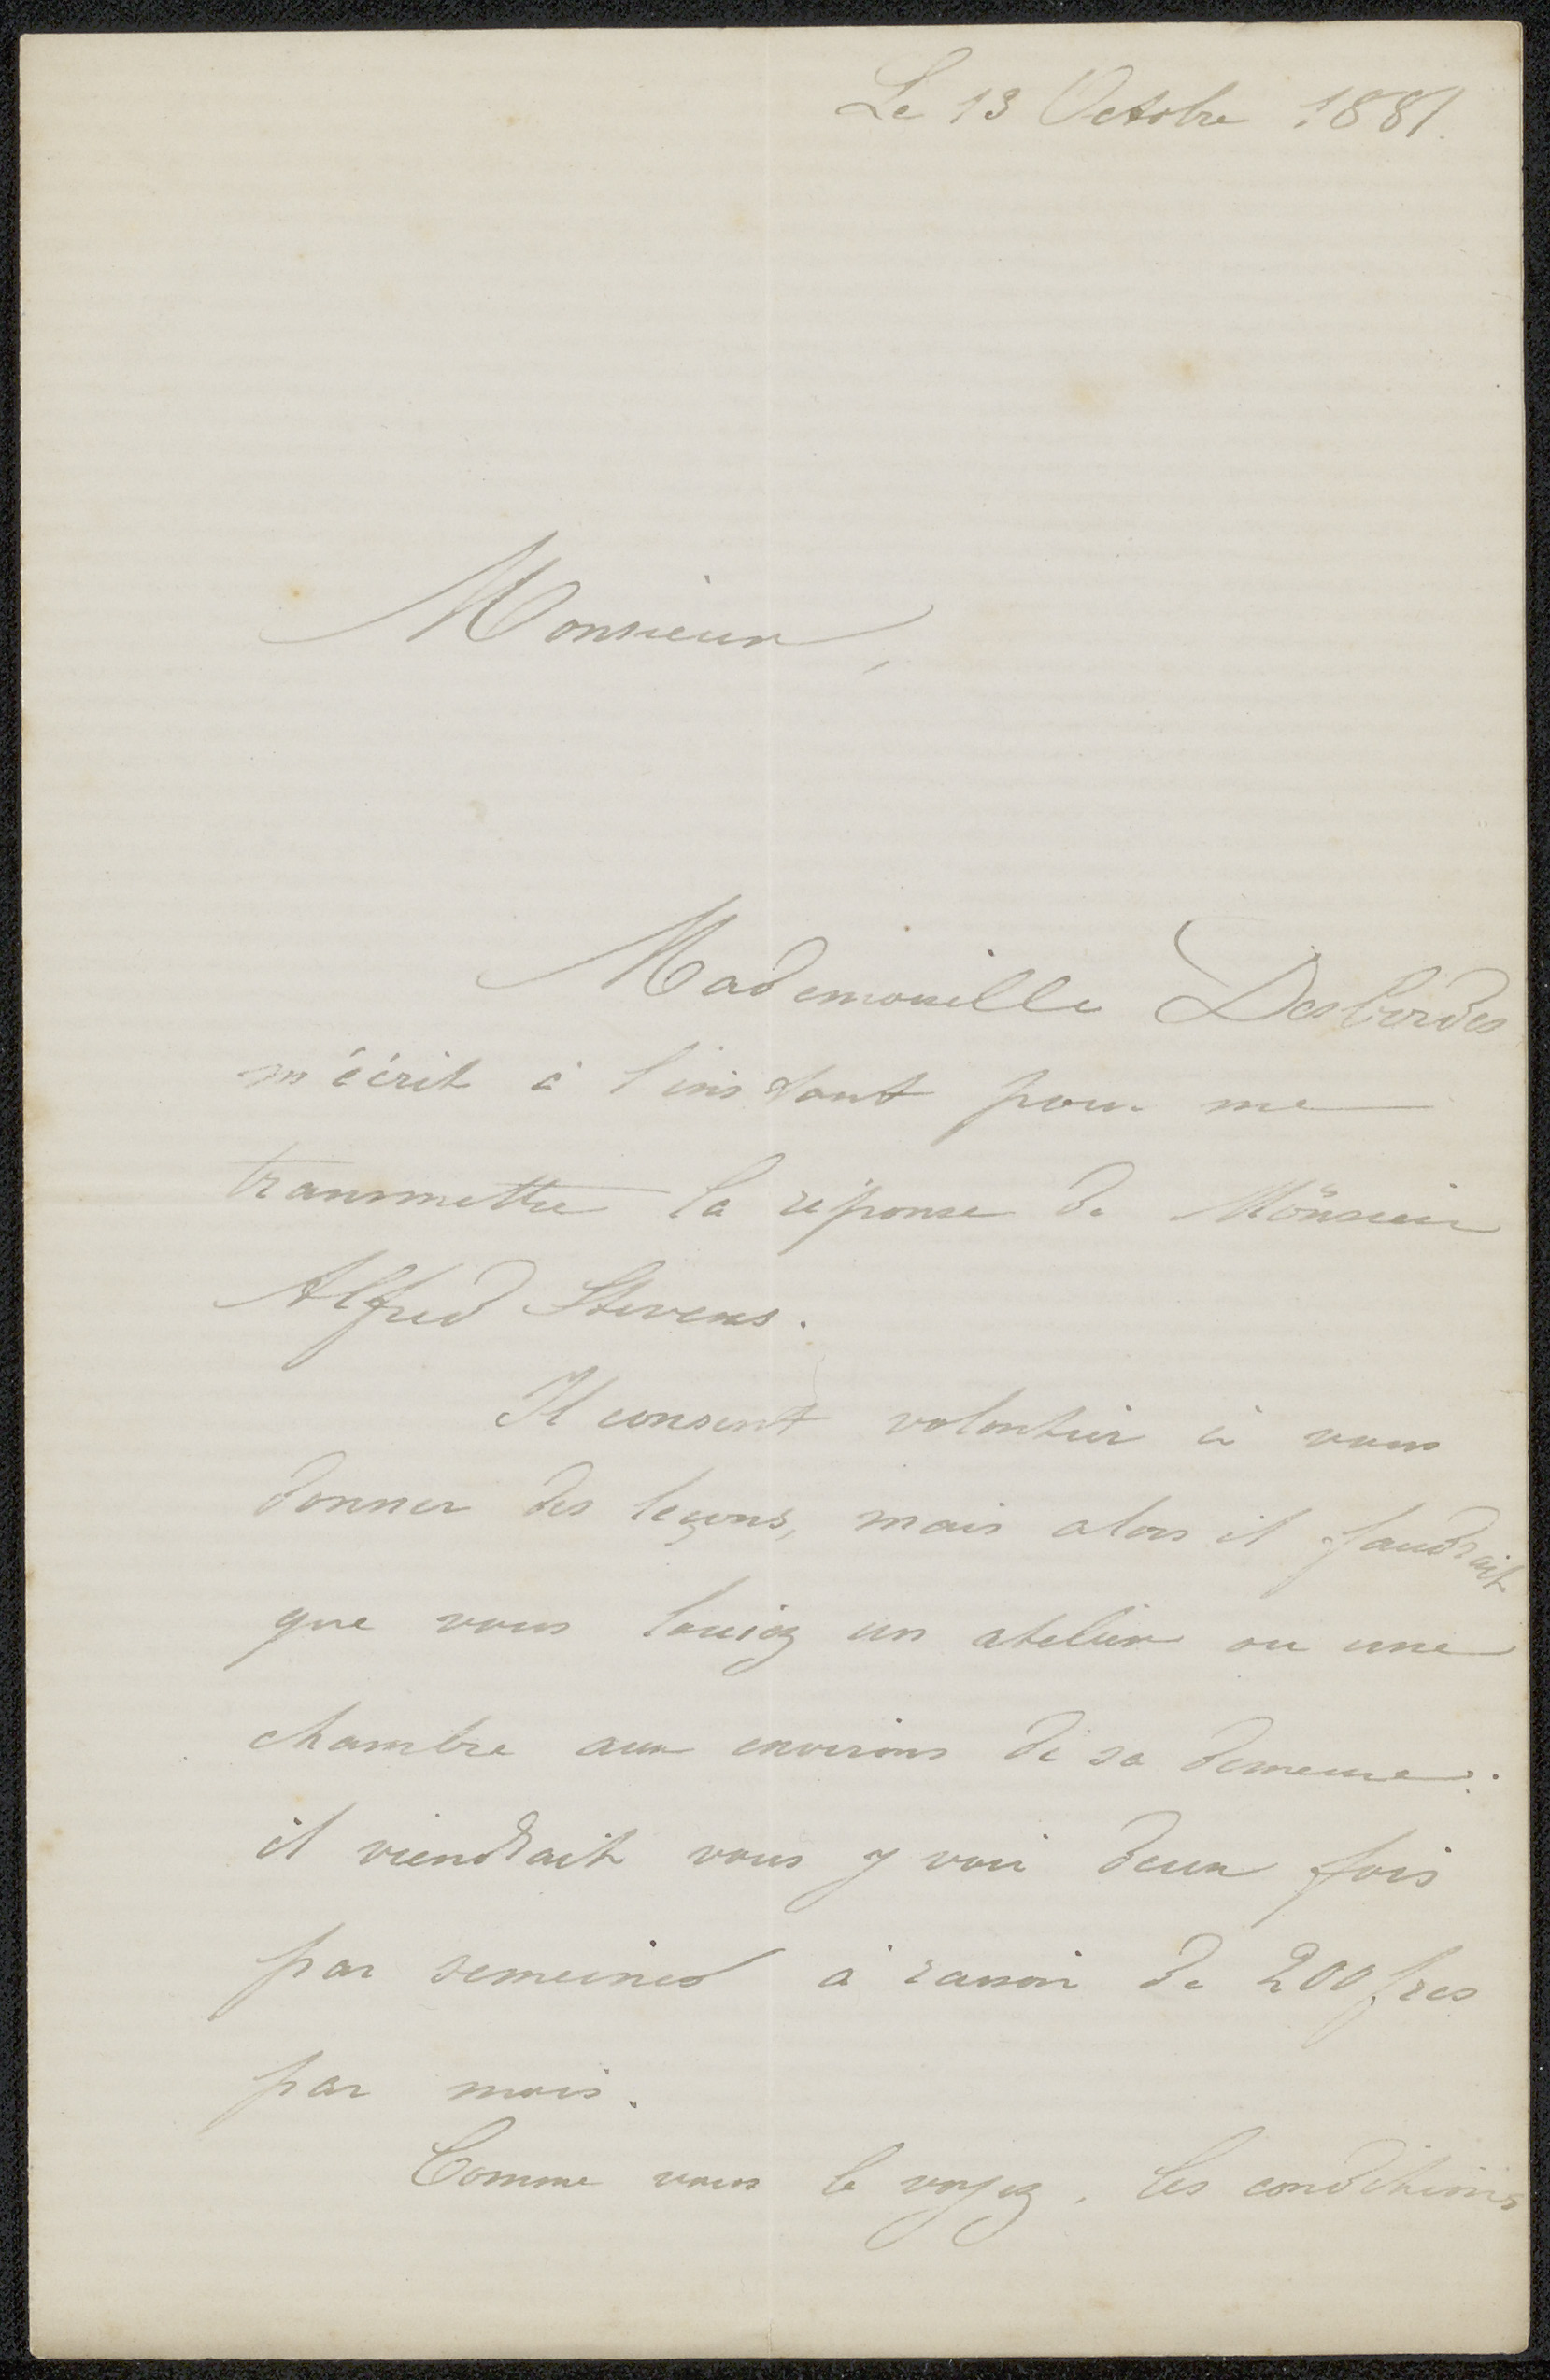 Le 13 Octobre 1881.
Monsieur,
Mademoiselle Desbordes
m'écrit à l'instant pour me
transmettre la réponse de Monsieur
Alfred Stevens.
Il consent volontier à vous
donner des leçons, mais alors il faudrait
que vous louiez un atelier ou une
chambre aux environs de sa demeure.
il viendrait vous y voir deux fois
par semeines à raison de 200 frcs
par mois.
Comme vous le voyez, les conditions